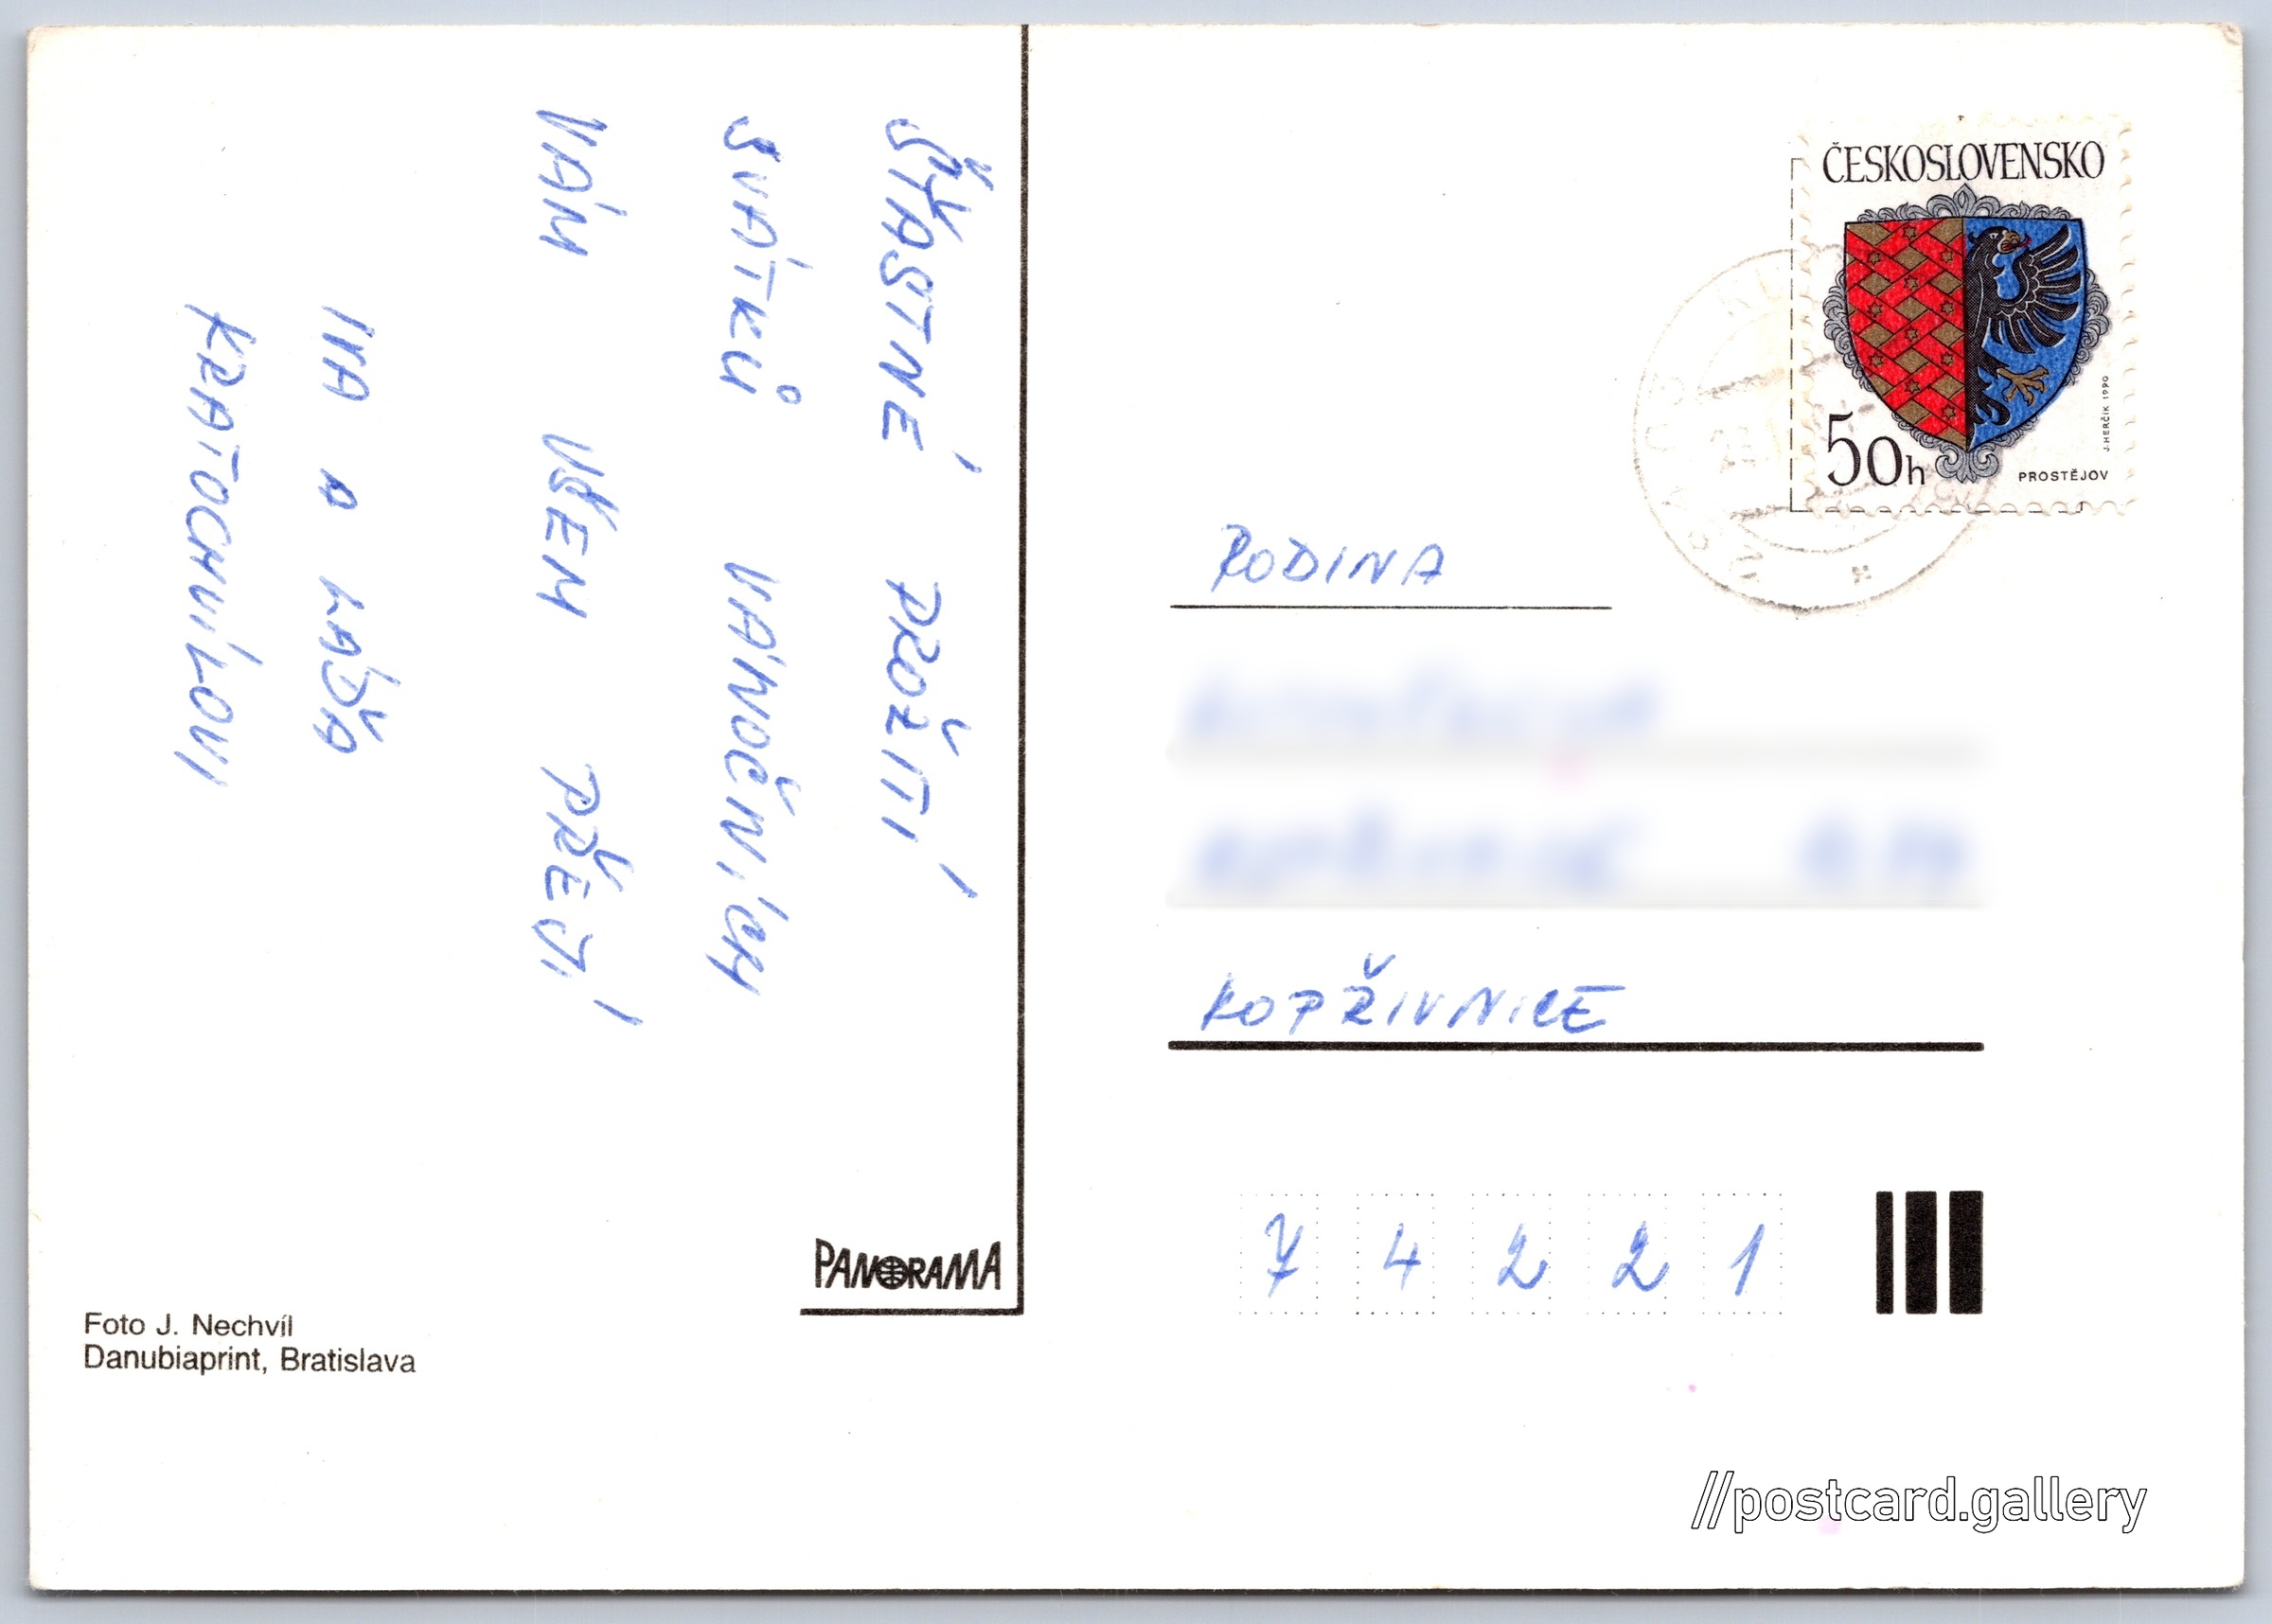 ŠŤASTNÉ PROŽITÍ
SVÁTKŮ VÁNOČNÍCH
VÁM VŠEM PŘEJÍ
IVA A LAĎA
KRATOCHVÍLOVI
PANORAMA
Foto J. Nechvíl
Danubiaprint, Bratislava
ČESKOSLOVENSKO
50h
PROSTĚJOV
J. HERČÍK 1990
RODINA
KOPŘIVNICE
74221
//postcard.gallery